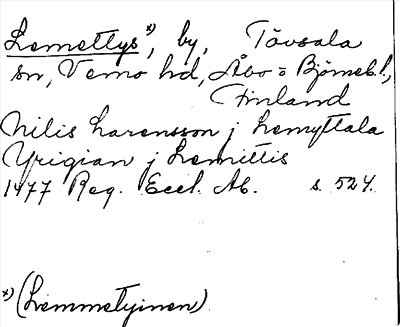 Lemettys x), by, Tövsala
sn, Vemo hd, Åbo = Björneb. l.,
Finland
Nilis Larensson j Lemyttala
Yrigian j Lemittis
1477 Reg. Eccl. Ab. s. 524.
x) (Lemmetyinen)